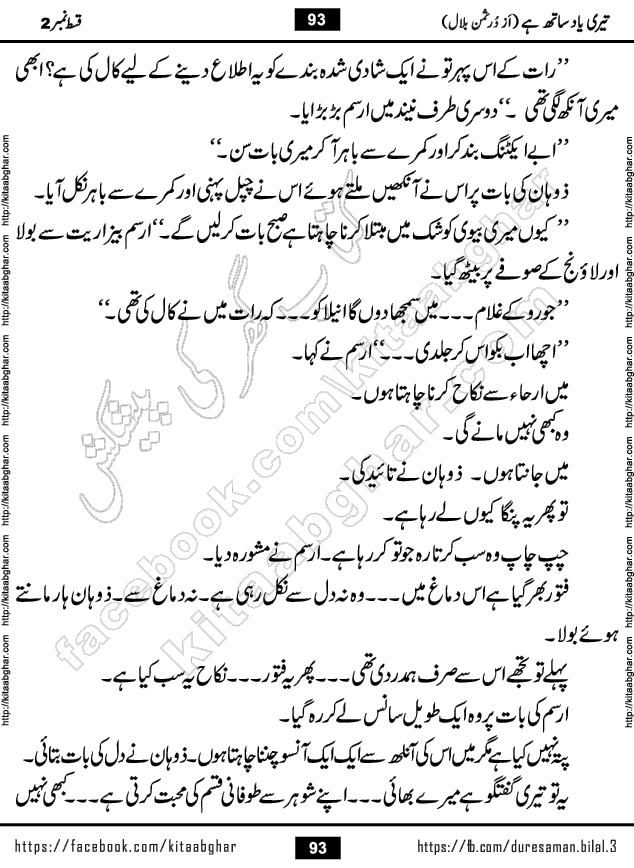 تیری یاد ساتھ ہے (از دُرِثمن بلال) 93 قسط نمبر 2
’’رات کے اس پہر تو نے ایک شادی شدہ بندے کو یہ اطلاع دینے کے لیے کال کی ہے؟ ابھی
میری آنکھ لگی تھی ۔‘‘ دوسری طرف نیند میں ارسم بڑبڑایا۔
’’ابے ایکٹنگ بند کر اور کمرے سے باہر آ کر میری بات سن۔‘‘
ذوہان کی بات پر اس نے آنکھیں ملتے ہوئے اس نے چپل پہنی اور کمرے سے باہر نکل آیا۔
’’کیوں میری بیوی کو شک میں مبتلا کرنا چاہتا ہے صبح بات کر لیں گے۔‘‘ ارسم بیزاریت سے بولا
اور لاؤنج کے صوفے پر بیٹھ گیا۔
’’جورو کے غلام ۔۔۔ میں سمجھا دوں گا انیلا کو ۔۔۔ کہ رات میں نے کال کی تھی۔‘‘
’’اچھا اب بکواس کر جلدی ۔۔۔‘‘ ارسم نے کہا۔
میں ارحاء سے نکاح کرنا چاہتا ہوں۔
وہ کبھی نہیں مانے گی۔
میں جانتا ہوں۔ ذوہان نے تائید کی۔
تو پھر یہ پنگا کیوں لے رہا ہے۔
چپ چاپ وہ سب کرتا رہ جو تو کر رہا ہے۔ ارسم نے مشورہ دیا۔
فتور بھر گیا ہے اس دماغ میں ۔۔۔ وہ نہ دل سے نکل رہی ہے۔ نہ دماغ سے۔ ذوہان ہار مانتے
ہوئے بولا۔
پہلے تو تجھے اس سے صرف ہمدردی تھی ۔۔۔ پھر یہ فتور ۔۔۔ نکاح یہ سب کیا ہے۔
ارسم کی بات پر وہ ایک طویل سانس لے کر رہ گیا۔
پتہ نہیں کیا ہے مگر میں اس کی آنکھ سے ایک ایک آنسو چننا چاہتا ہوں۔ ذوہان نے دل کی بات بتائی۔
یہ تو تیری گفتگو ہے میرے بھائی ۔۔۔ اپنے شوہر سے طوفانی قسم کی محبت کرتی ہے ۔۔۔ کبھی نہیں
https://facebook.com/kitaabghar 93 https://fb.com/duresaman.bilal.3
http://kitaabghar.com http://kitaabghar.com http://kitaabghar.com http://kitaabghar.com http://kitaabghar.com http://kitaabghar.com
http://kitaabghar.com http://kitaabghar.com http://kitaabghar.com http://kitaabghar.com http://kitaabghar.com http://kitaabghar.com
کتاب گھر کی پیشکش
facebook.com/kitaabghar
kitaabghar.com